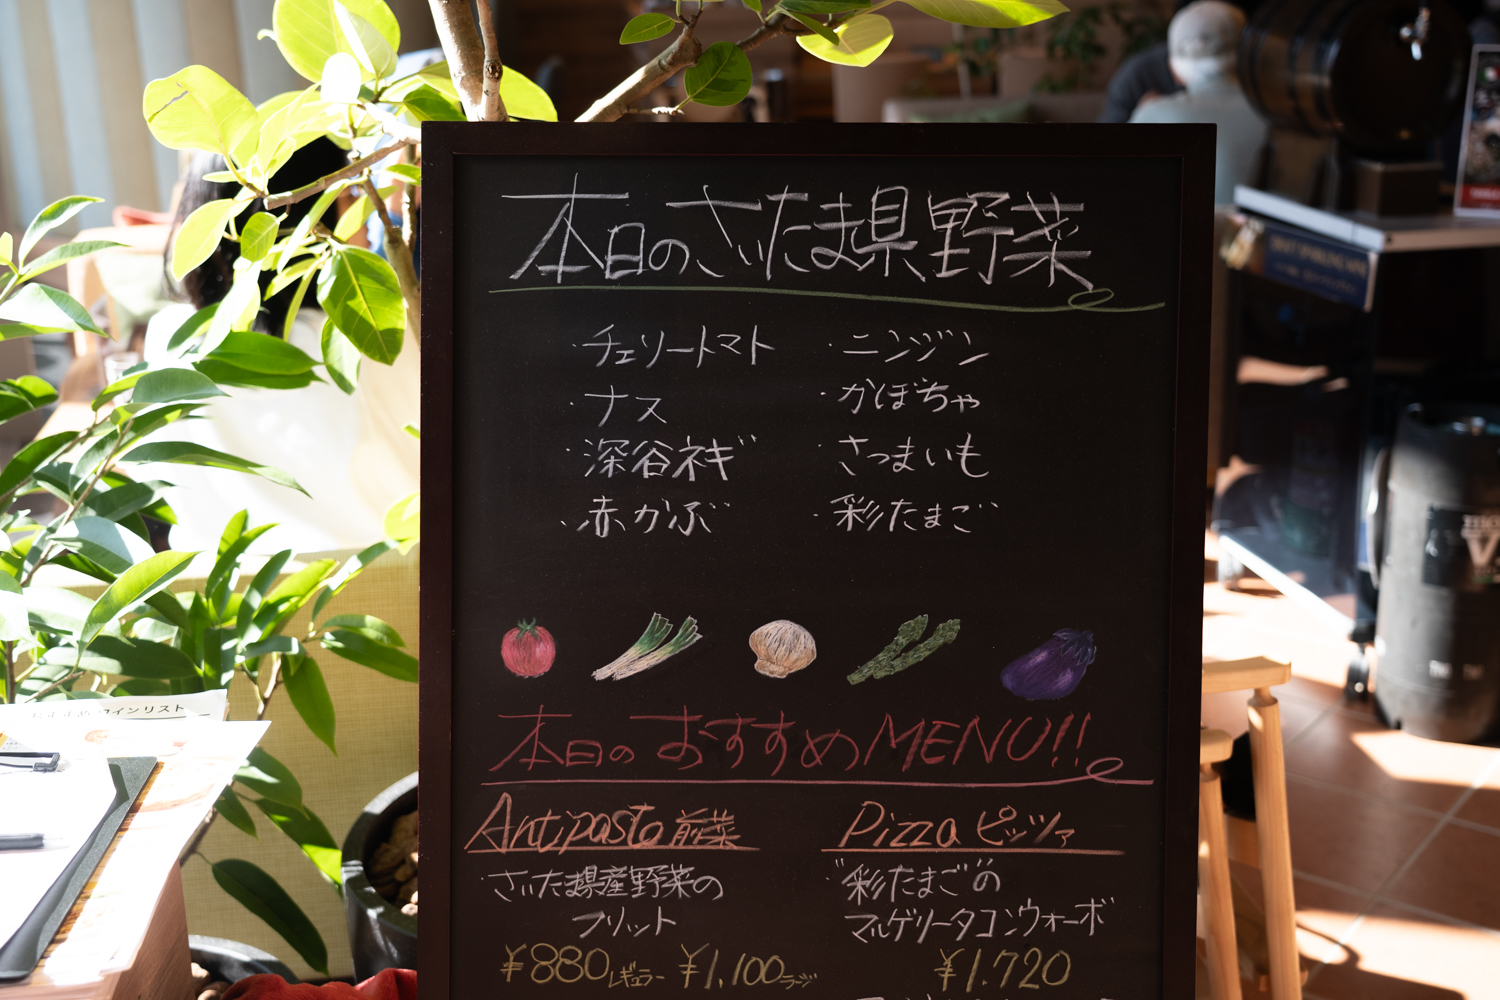 本日のさいたま県野菜
・チェリートマト
・ニンジン
・ナス
・かぼちゃ
・深谷ネギ
・さつまいも
・赤かぶ
・彩たまご
本日のおすすめMENU!!
Antipasto 前菜
・さいたま県産野菜の
フリット
¥880レギュラー ¥1,100ラージ
Pizza ピッツァ
・"彩たまご"の
マルゲリータコンウォーボ
¥1.720
おすすめワインリスト